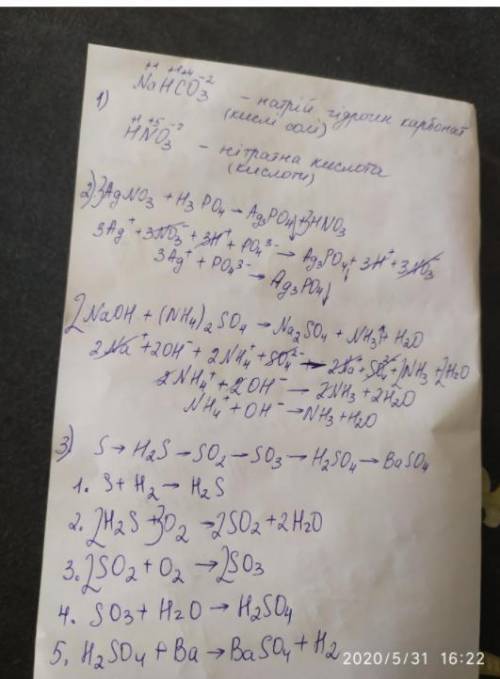 +1 +1+4 -2
NaHCO₃ - натрій гідроген карбонат
1) (кислі солі)
+1 +5 -2
HNO₃ - нітратна кислота
(кислоти)
2) 3AgNO₃ + H₃PO₄ → Ag₃PO₄↓ + 3HNO₃
3Ag⁺ + 3NO₃⁻ + 3H⁺ + PO₄³⁻ → Ag₃PO₄↓ + 3H⁺ + 3NO₃⁻
3Ag⁺ + PO₄³⁻ → Ag₃PO₄↓
2NaOH + (NH₄)₂SO₄ → Na₂SO₄ + NH₃↑ + H₂O
2Na⁺ + 2OH⁻ + 2NH₄⁺ + SO₄²⁻ → 2Na⁺ + SO₄²⁻ + 2NH₃ + 2H₂O
2NH₄⁺ + 2OH⁻ → 2NH₃ + 2H₂O
NH₄⁺ + OH⁻ → NH₃ + H₂O
3) S → H₂S → SO₂ → SO₃ → H₂SO₄ → BaSO₄
1. S + H₂ → H₂S
2. 2H₂S + 3O₂ → 2SO₂ + 2H₂O
3. 2SO₂ + O₂ → 2SO₃
4. SO₃ + H₂O → H₂SO₄
5. H₂SO₄ + Ba → BaSO₄ + H₂
2020/5/31 16:22